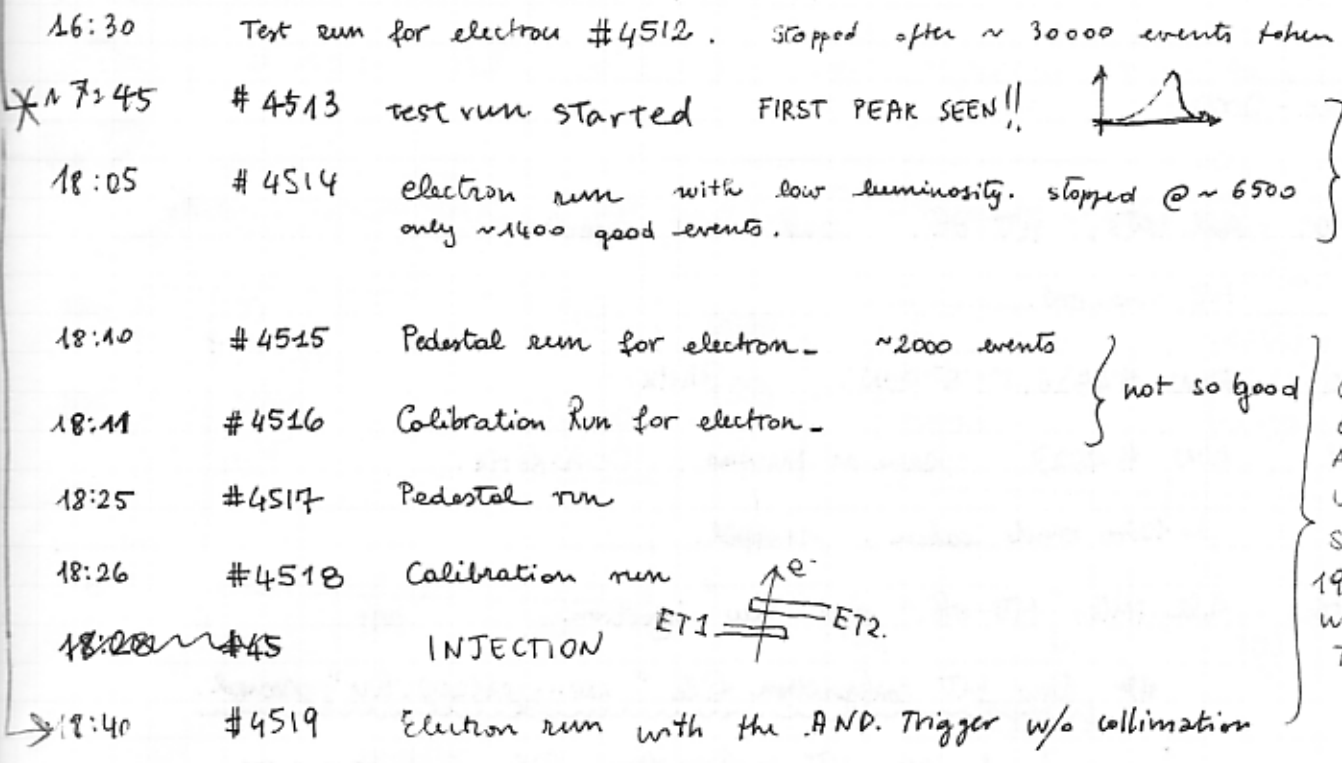 16:30 Test run for electron #4512. Stopped after ~ 30000 events taken
~17:45 #4513 test run started FIRST PEAK SEEN!!
18:05 #4514 electron run with low luminosity. stopped @ ~ 6500
only ~1400 good events.
18:10 #4515 Pedestal run for electron - ~2000 events
not so good
18:11 #4516 Calibration Run for electron -
18:25 #4517 Pedestal run
18:26 #4518 Calibration run
e-
ET1 ET2.
#45 INJECTION
18:40 #4519 Electron run with the .AND. Trigger w/o collimation